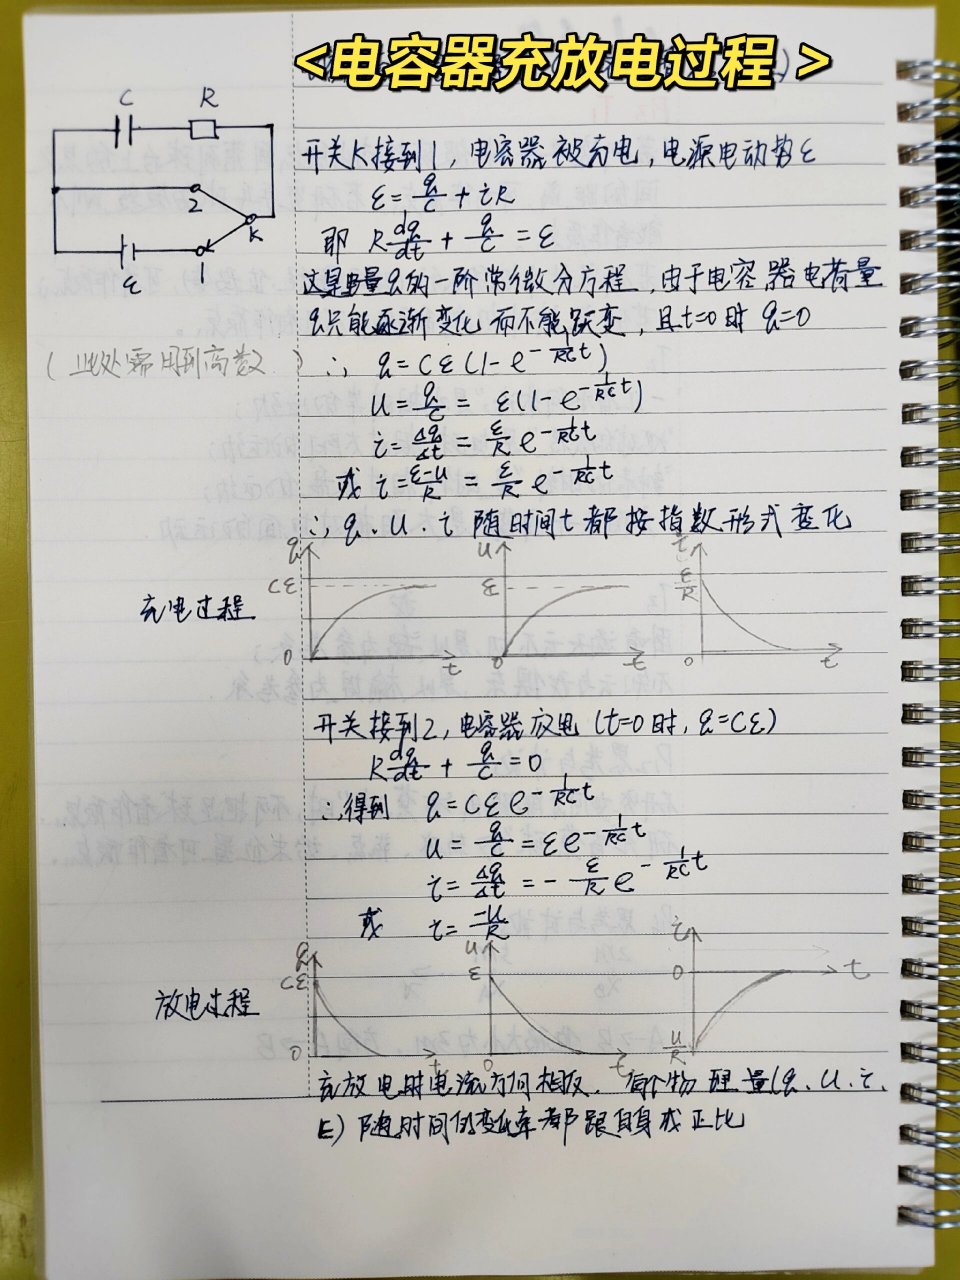 <电容器充放电过程 >
C R
2
K
ε 1
开关K接到1，电容器被充电，电源电动势ε
ε=q/c+iR
即 R dq/dt + q/c = ε
这是电量q的一阶常微分方程，由于电容器电荷量
q只能逐渐变化而不能跃变，且t=0时 q=0
(此处需用到高数) ∴ q=Cε(1-e^{-1/RC t})
U=q/c = ε(1-e^{-1/RC t})
i=Δq/Δt = ε/R e^{-1/RC t}
或 i=ε-u/R = ε/R e^{-1/RC t}
∴ q、U、i 随时间t都按指数形式变化
q U i
Cε ε ε/R
充电过程
0 t 0 t 0 t
开关接到2，电容器放电 (t=0时，q=Cε)
R dq/dt + q/c = 0
∴得到 q=Cε e^{-1/RC t}
u=q/c=ε e^{-1/RC t}
i=Δq/Δt=-ε/R e^{-1/RC t}
或 i=-u/R
q u i
Cε ε 0 t
放电过程
0 t 0 t U/R
充放电时电流方向相反. 每个物理量(q、U、i、
E)随时间的变化率都跟自身成正比